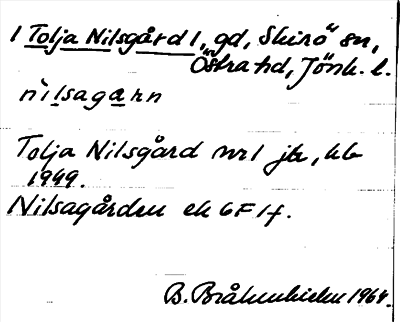 1 Tolja Nilsgård 1, gd, Skirö sn,
Östra hd, Jönk. l.
nilsagaṇ
Tolja Nilsgård nr 1 jb, kb
1949.
Nilsagården ek 6F 1f.
B. Bråhn 1964.